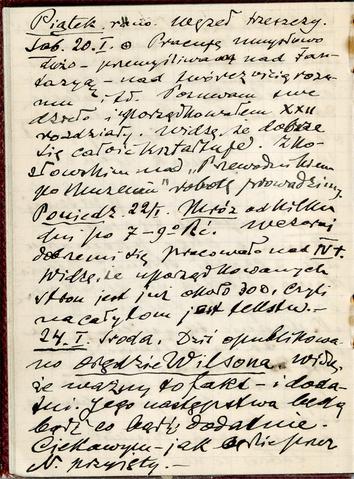 Piątek, rano. Wgzeł trzeszczy.
Sob. 20.I. Pracuję umysłowo
dużo – przemyśliwa nad fan-
tazyą – nad
mu i td. Posuwam swe
dzieło i uporządkowałem XXII
rozdziały. Widzę, że dobrze
się całość kształtuje. Z Ko-
słowskim nad „Przewodnikiem
po Muzeum" robotę prowadzimy.
Poniedz. 22/I. Mróz od kilku
dni po 7–9° Rć. Wczoraj
dobrze mi się pracowało nad IV t.
Widzę, że uporządkowanych
stron jest już około 300, czyli
na cały tom jest tekstu. –
24.I. Środa. Dziś opublikowa-
no orędzie Wilsona. Widzę,
że ważny to fakt – i doda-
tni. Jego następstwa będą
bądź co bądź dodatnie.
Ciekawym – jak będzie przez
N. przyjęty. –